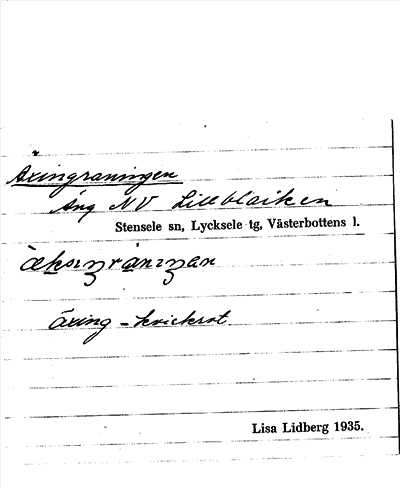 Äxingraningen
Äng NV Lillblaiken
Stensele sn, Lycksele tg, Västerbottens l.
äxing - kvickrot
Lisa Lidberg 1935.